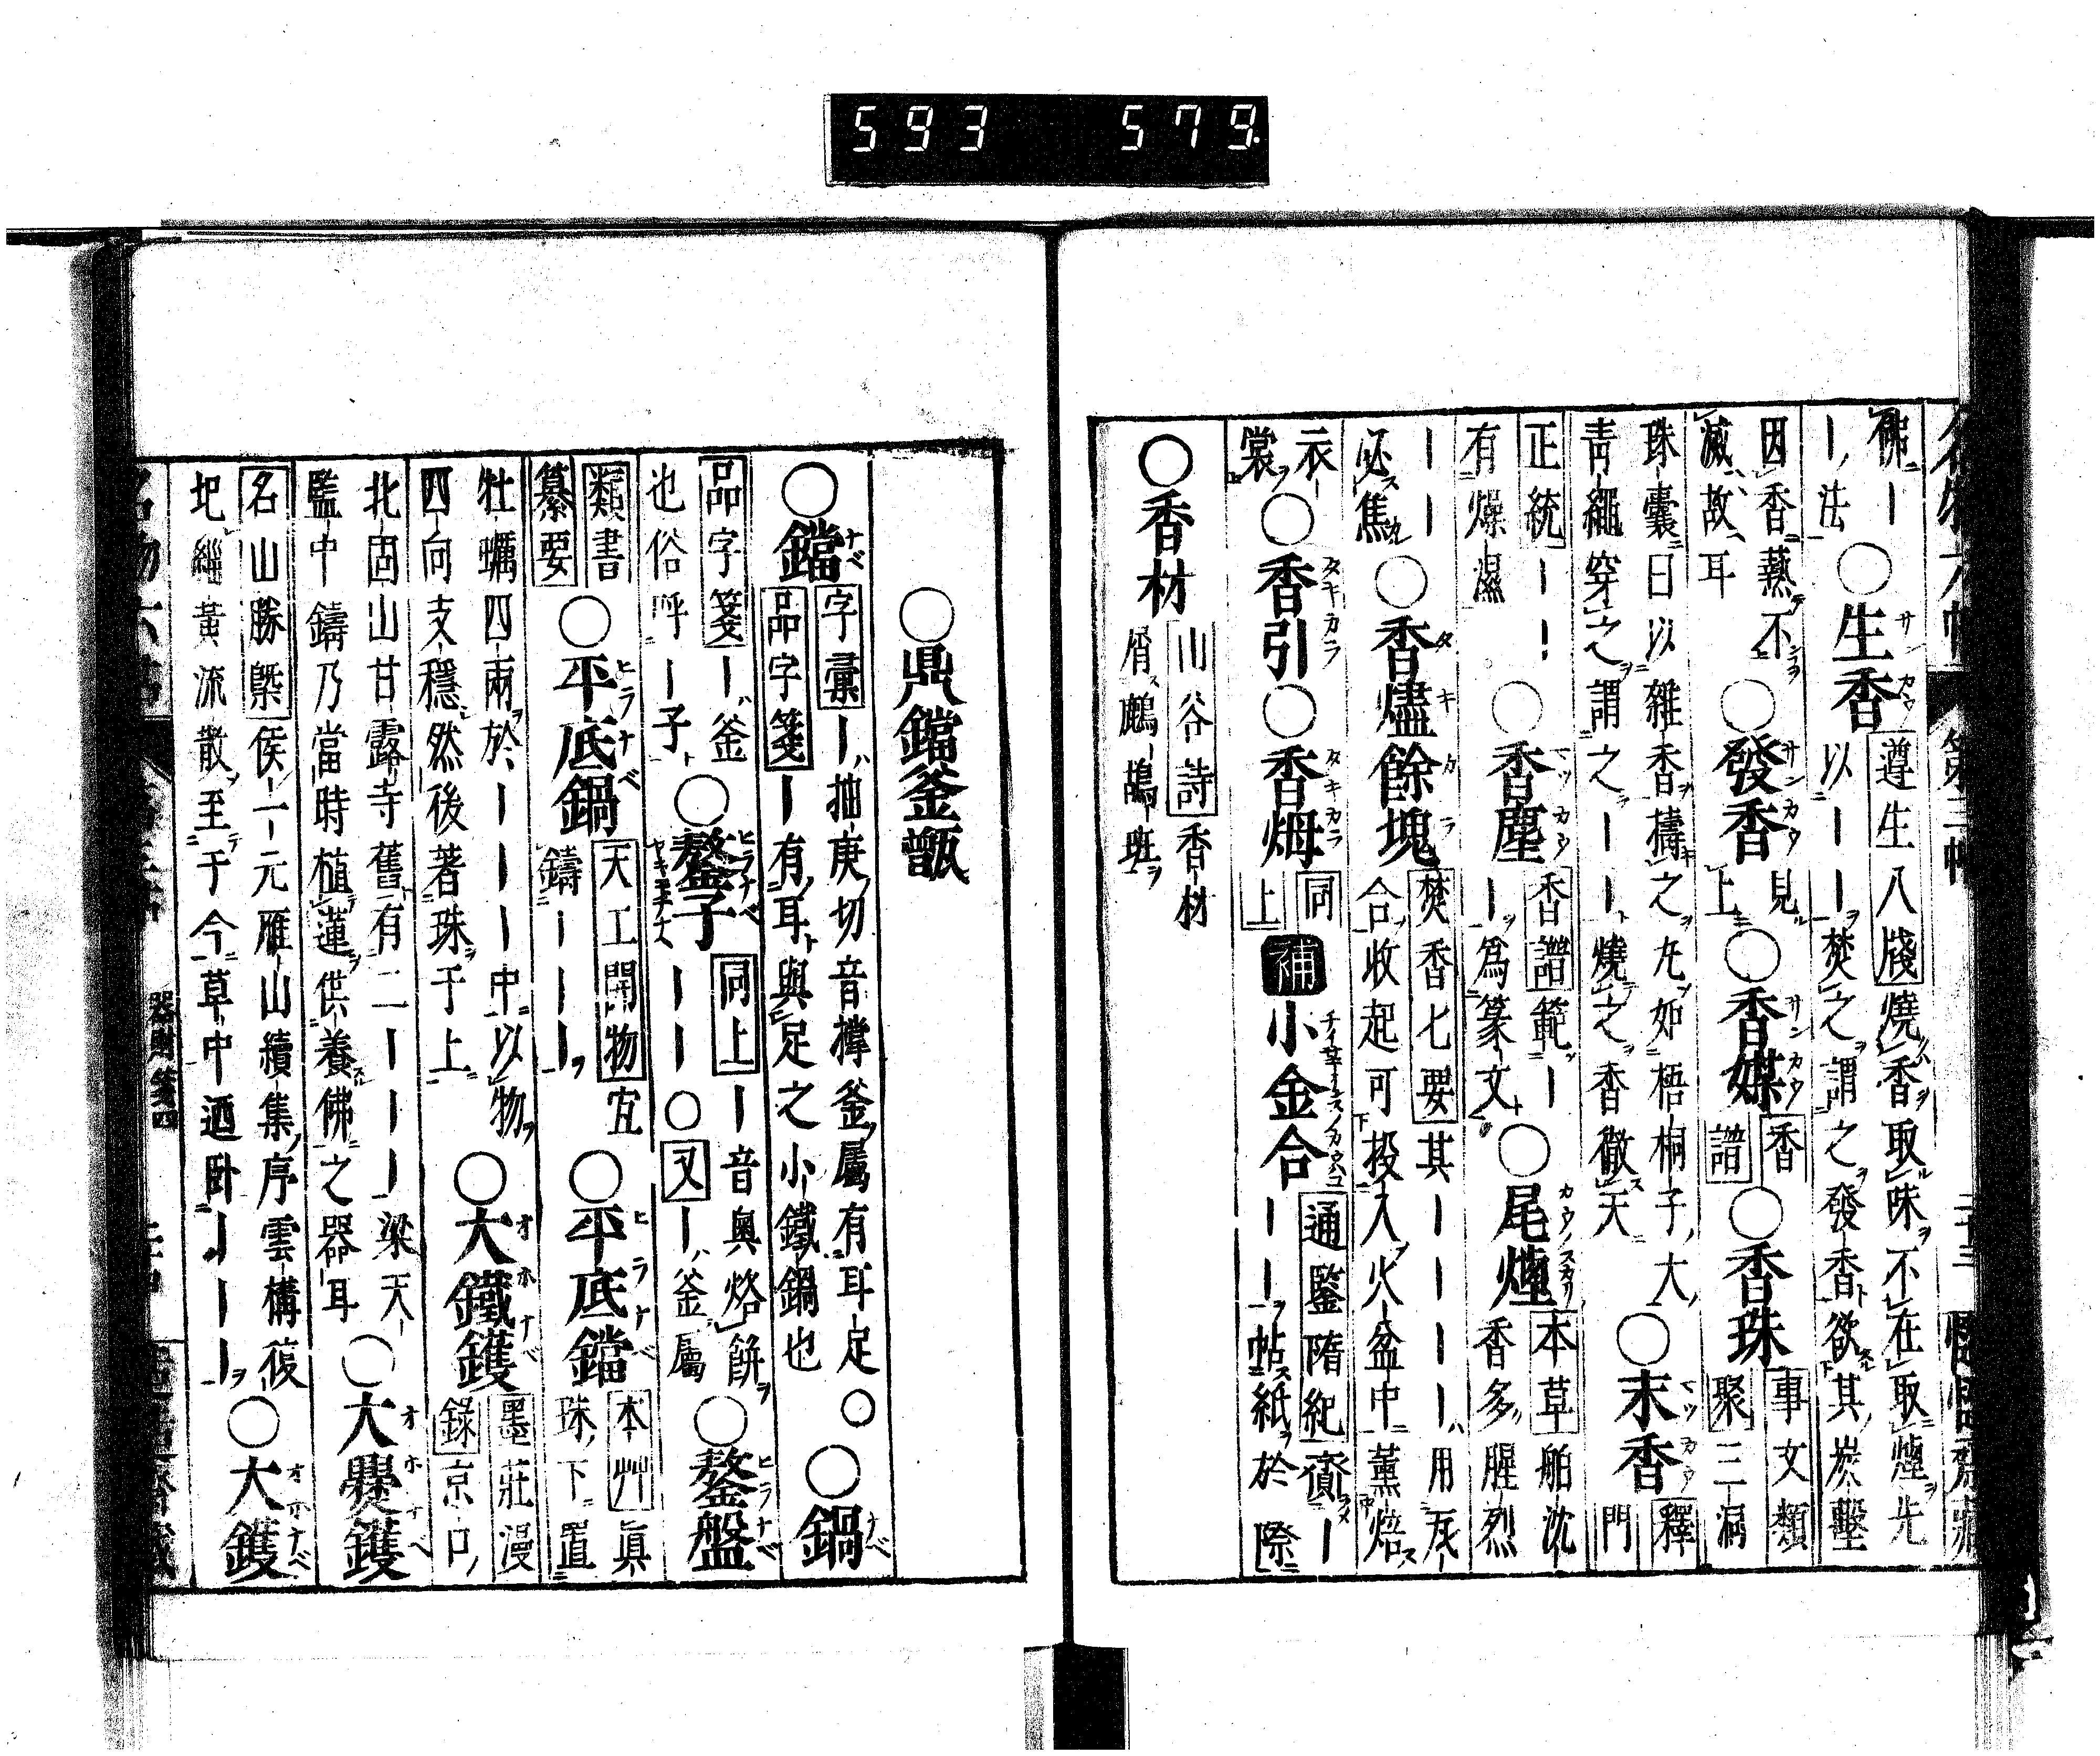 593 579.
佛ー○生香 遵生八牋 燒香取味不在取煙先
ー法 以ーー焚之謂之發香欲其炭墼
因香爇不滅故耳 ○發香 見上 ○香媒 香譜 ○香珠 事文類聚 三洞
珠囊曰以雜香擣之丸如梧桐子大
青繩穿之謂之ーー燒之香徹天 ○末香 釋門
正統ーー
有燥濕 ○香塵 香譜 範ーーー爲篆文 ○尾煙 本草 舶沈香多腥烈
ーーー必焦 ○香燼餘塊 焚香七要 其ーーーー用瓦
合收起可投入火盆中薫焙
衣裳 ○香引○香煤 同上 補 小金合 通鑒隋紀 齎ーーーー帖紙於際
○香材 山谷詩 香材屑鷓鴣斑
○鼎鐺釜甑
○鐺 字彙 ー抽庚切音撐釜屬有耳足○
品字箋 ー有耳與足之小鐵鍋也 ○鍋
品字箋 ー釜也俗呼ー子 ○鏊子 同上 ー音奥烙餅ーー○又ー釜屬 ○鏊盤
類書纂要 ○平底鍋 天工開物 宜鑄ーーーー ○平底鐺 本艸 眞珠下置
牡蠣四兩於ーーーー中以物
四向支穩然後著珠于上 ○大鐵鑊 墨莊漫錄 京口
北固山甘露寺舊有二ーーーー梁天
監中鑄乃當時植蓮供養佛之器耳 ○大㸑鑊
名山勝槩 侯一元雁山續集序雲構復
圯緇黃流散至于今草中迺卧ーーーー ○大鑊
器財箋四